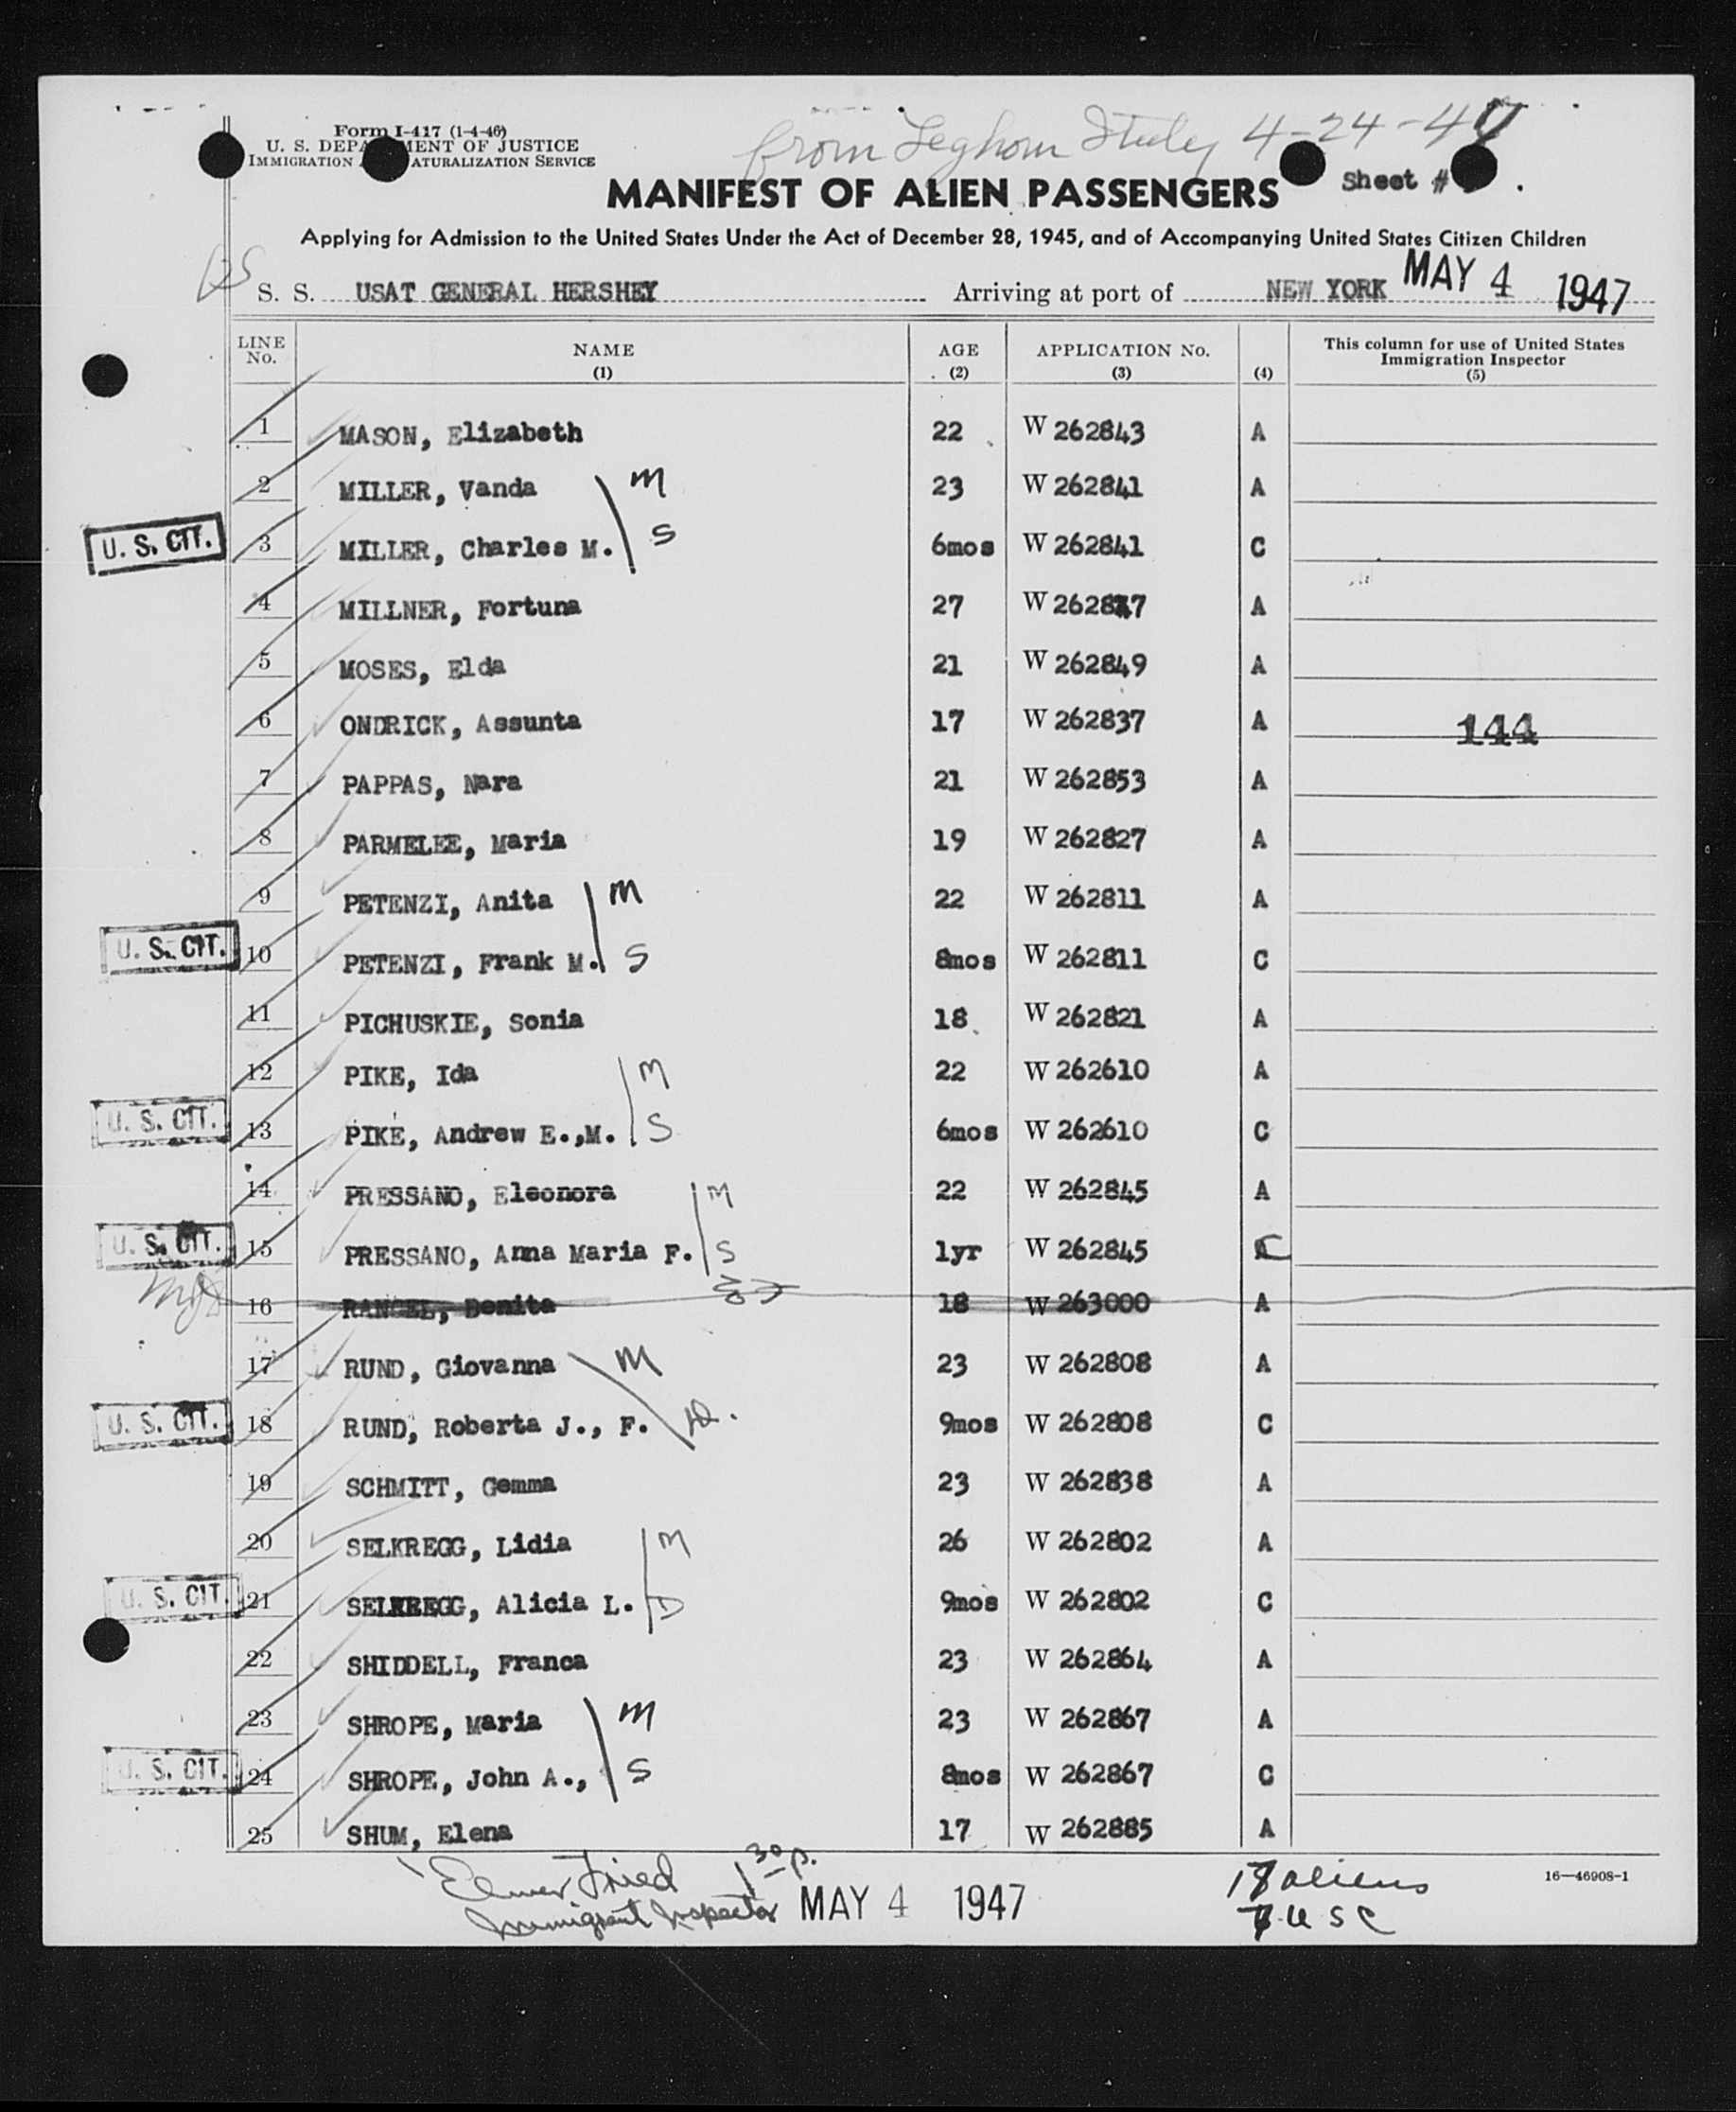 Form I-417 (1-4-46)
U. S. DEPA MENT OF JUSTICE
IMMIGRATION ATURALIZATION SERVICE
from Leghorn Italy 4-24-47
Sheet #
MANIFEST OF ALIEN PASSENGERS
Applying for Admission to the United States Under the Act of December 28, 1945, and of Accompanying United States Citizen Children
S. S. USAT GENERAL HERSHEY Arriving at port of NEW YORK MAY 4 1947
LINE No. NAME (1) AGE (2) APPLICATION No. (3) (4) This column for use of United States Immigration Inspector (5)
1 MASON, Elizabeth 22 W 262843 A
2 MILLER, Vanda M 23 W 262841 A
U. S. CIT. 3 MILLER, Charles M. S 6mos W 262841 C
4 MILLNER, Fortuna 27 A
5 MOSES, Elda 21 W 262849 A
6 ONDRICK, Assunta 17 W 262837 A 144
7 PAPPAS, Nara 21 W 262853 A
8 PARMELEE, Maria 19 W 262827 A
9 PETENZI, Anita M 22 W 262811 A
U. S. CIT. 10 PETENZI, Frank M. S 8mos W 262811 C
11 PICHUSKIE, Sonia 18 W 262821 A
12 PIKE, Ida M 22 W 262610 A
U. S. CIT. 13 PIKE, Andrew E.,M. S 6mos W 262610 C
14 PRESSANO, Eleonora M 22 W 262845 A
U. S. CIT. 15 PRESSANO, Anna Maria F. S 1yr W 262845 C
16 RANGEL, Benita 18 W 263000 A
17 RUND, Giovanna M 23 W 262808 A
U. S. CIT. 18 RUND, Roberta J., F. 9mos W 262808 C
19 SCHMITT, Gemma 23 W 262838 A
20 SELKREGG, Lidia M 26 W 262802 A
U. S. CIT. 21 SELKREGG, Alicia L. D 9mos W 262802 C
22 SHIDDELL, Franca 23 W 262864 A
23 SHROPE, Maria M 23 W 262867 A
U. S. CIT. 24 SHROPE, John A., S 8mos W 262867 C
25 SHUM, Elena 17 W 262885 A
Elmer Fried 1 30 p.
Immigrant Inspector MAY 4 1947
17 aliens
7 U S C
16—46908-1